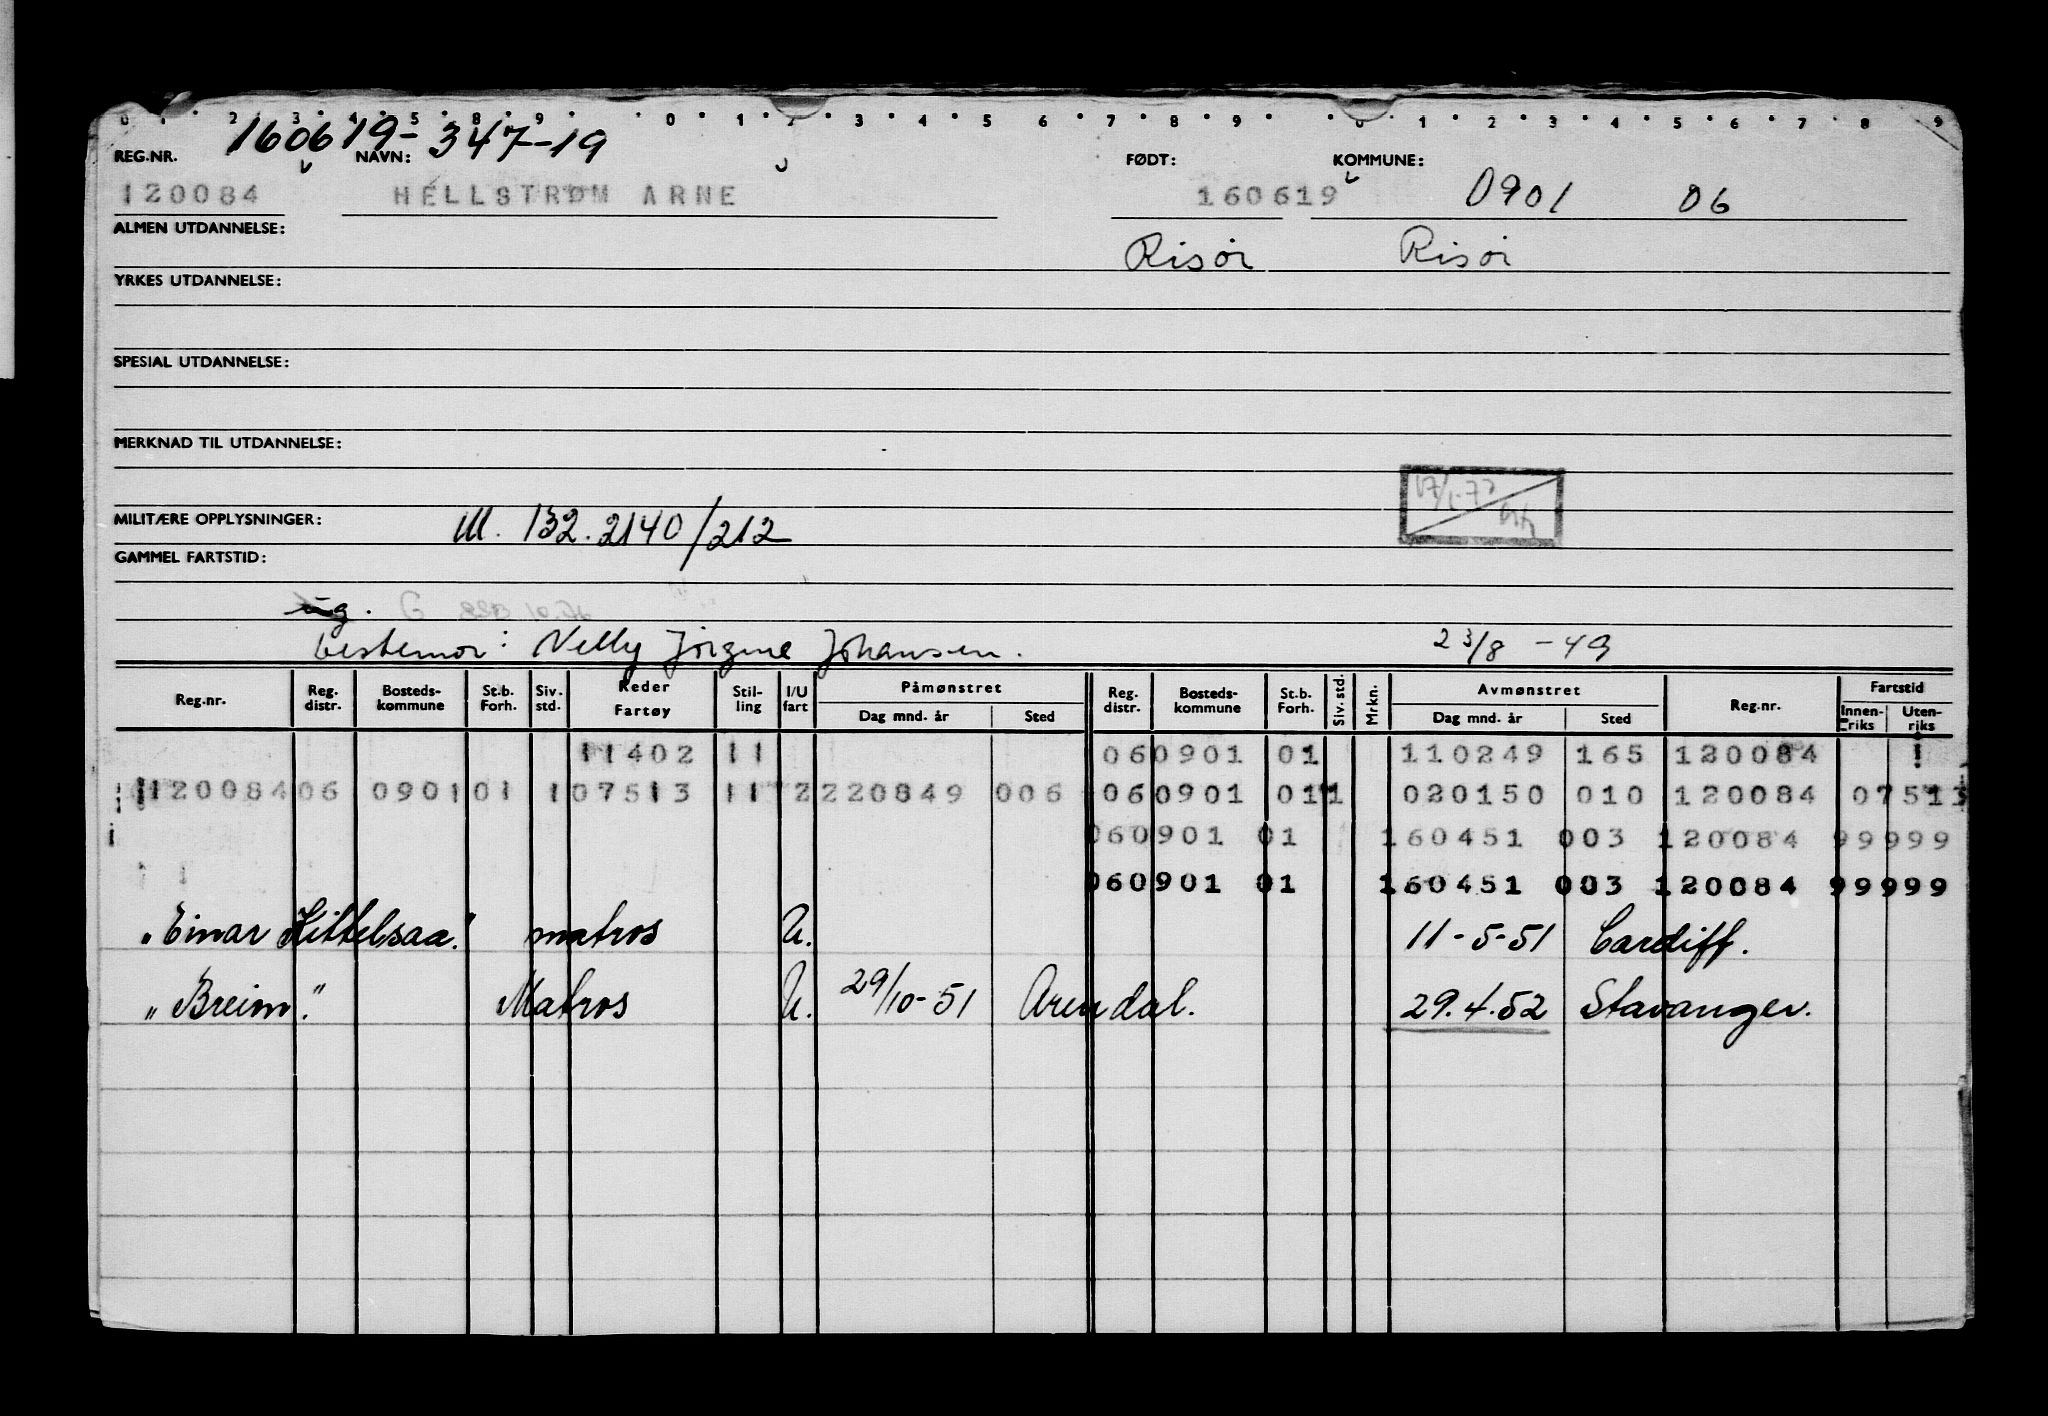 0 1 2 3 4 5 8 9 0 1 2 3 4 5 6 7 8 9 0 1 2 3 4 5 6 7 8 9
160619-347-19
REG.NR. NAVN: FØDT: KOMMUNE:
120084 HELLSTRØM ARNE 160619 0901 06
ALMEN UTDANNELSE: Risör Risör
YRKES UTDANNELSE:
SPESIAL UTDANNELSE:
MERKNAD TIL UTDANNELSE:
17/1-77
MILITÆRE OPPLYSNINGER: M. 132.2140/212
GAMMEL FARTSTID:
ug. G SSB 10.76
bestemor: Nelly Jörgine Johansen. 23/8 -49
Reg.nr. Reg. distr. Bosteds-kommune St.b. Forh. Siv. std. Reder Fartøy Stil-ling I/U fart Påmønstret Dag mnd. år Sted Reg. distr. Bosteds-kommune St.b. Forh. Siv. std. Mrkn. Avmønstret Dag mnd. år Sted Reg.nr. Fartstid Innen-riks Uten-riks
11402 11 060901 01 110249 165 120084 1
120084 06 0901 01 1 07513 11 2 220849 006 060901 01 1 020150 010 120084 07513
060901 01 160451 003 120084 99999
060901 01 160451 003 120084 99999
"Einar Kittelsaa." matros U. 11-5-51 Cardiff.
"Breim." Matros U. 29/10-51 Arendal. 29.4.52 Stavanger.